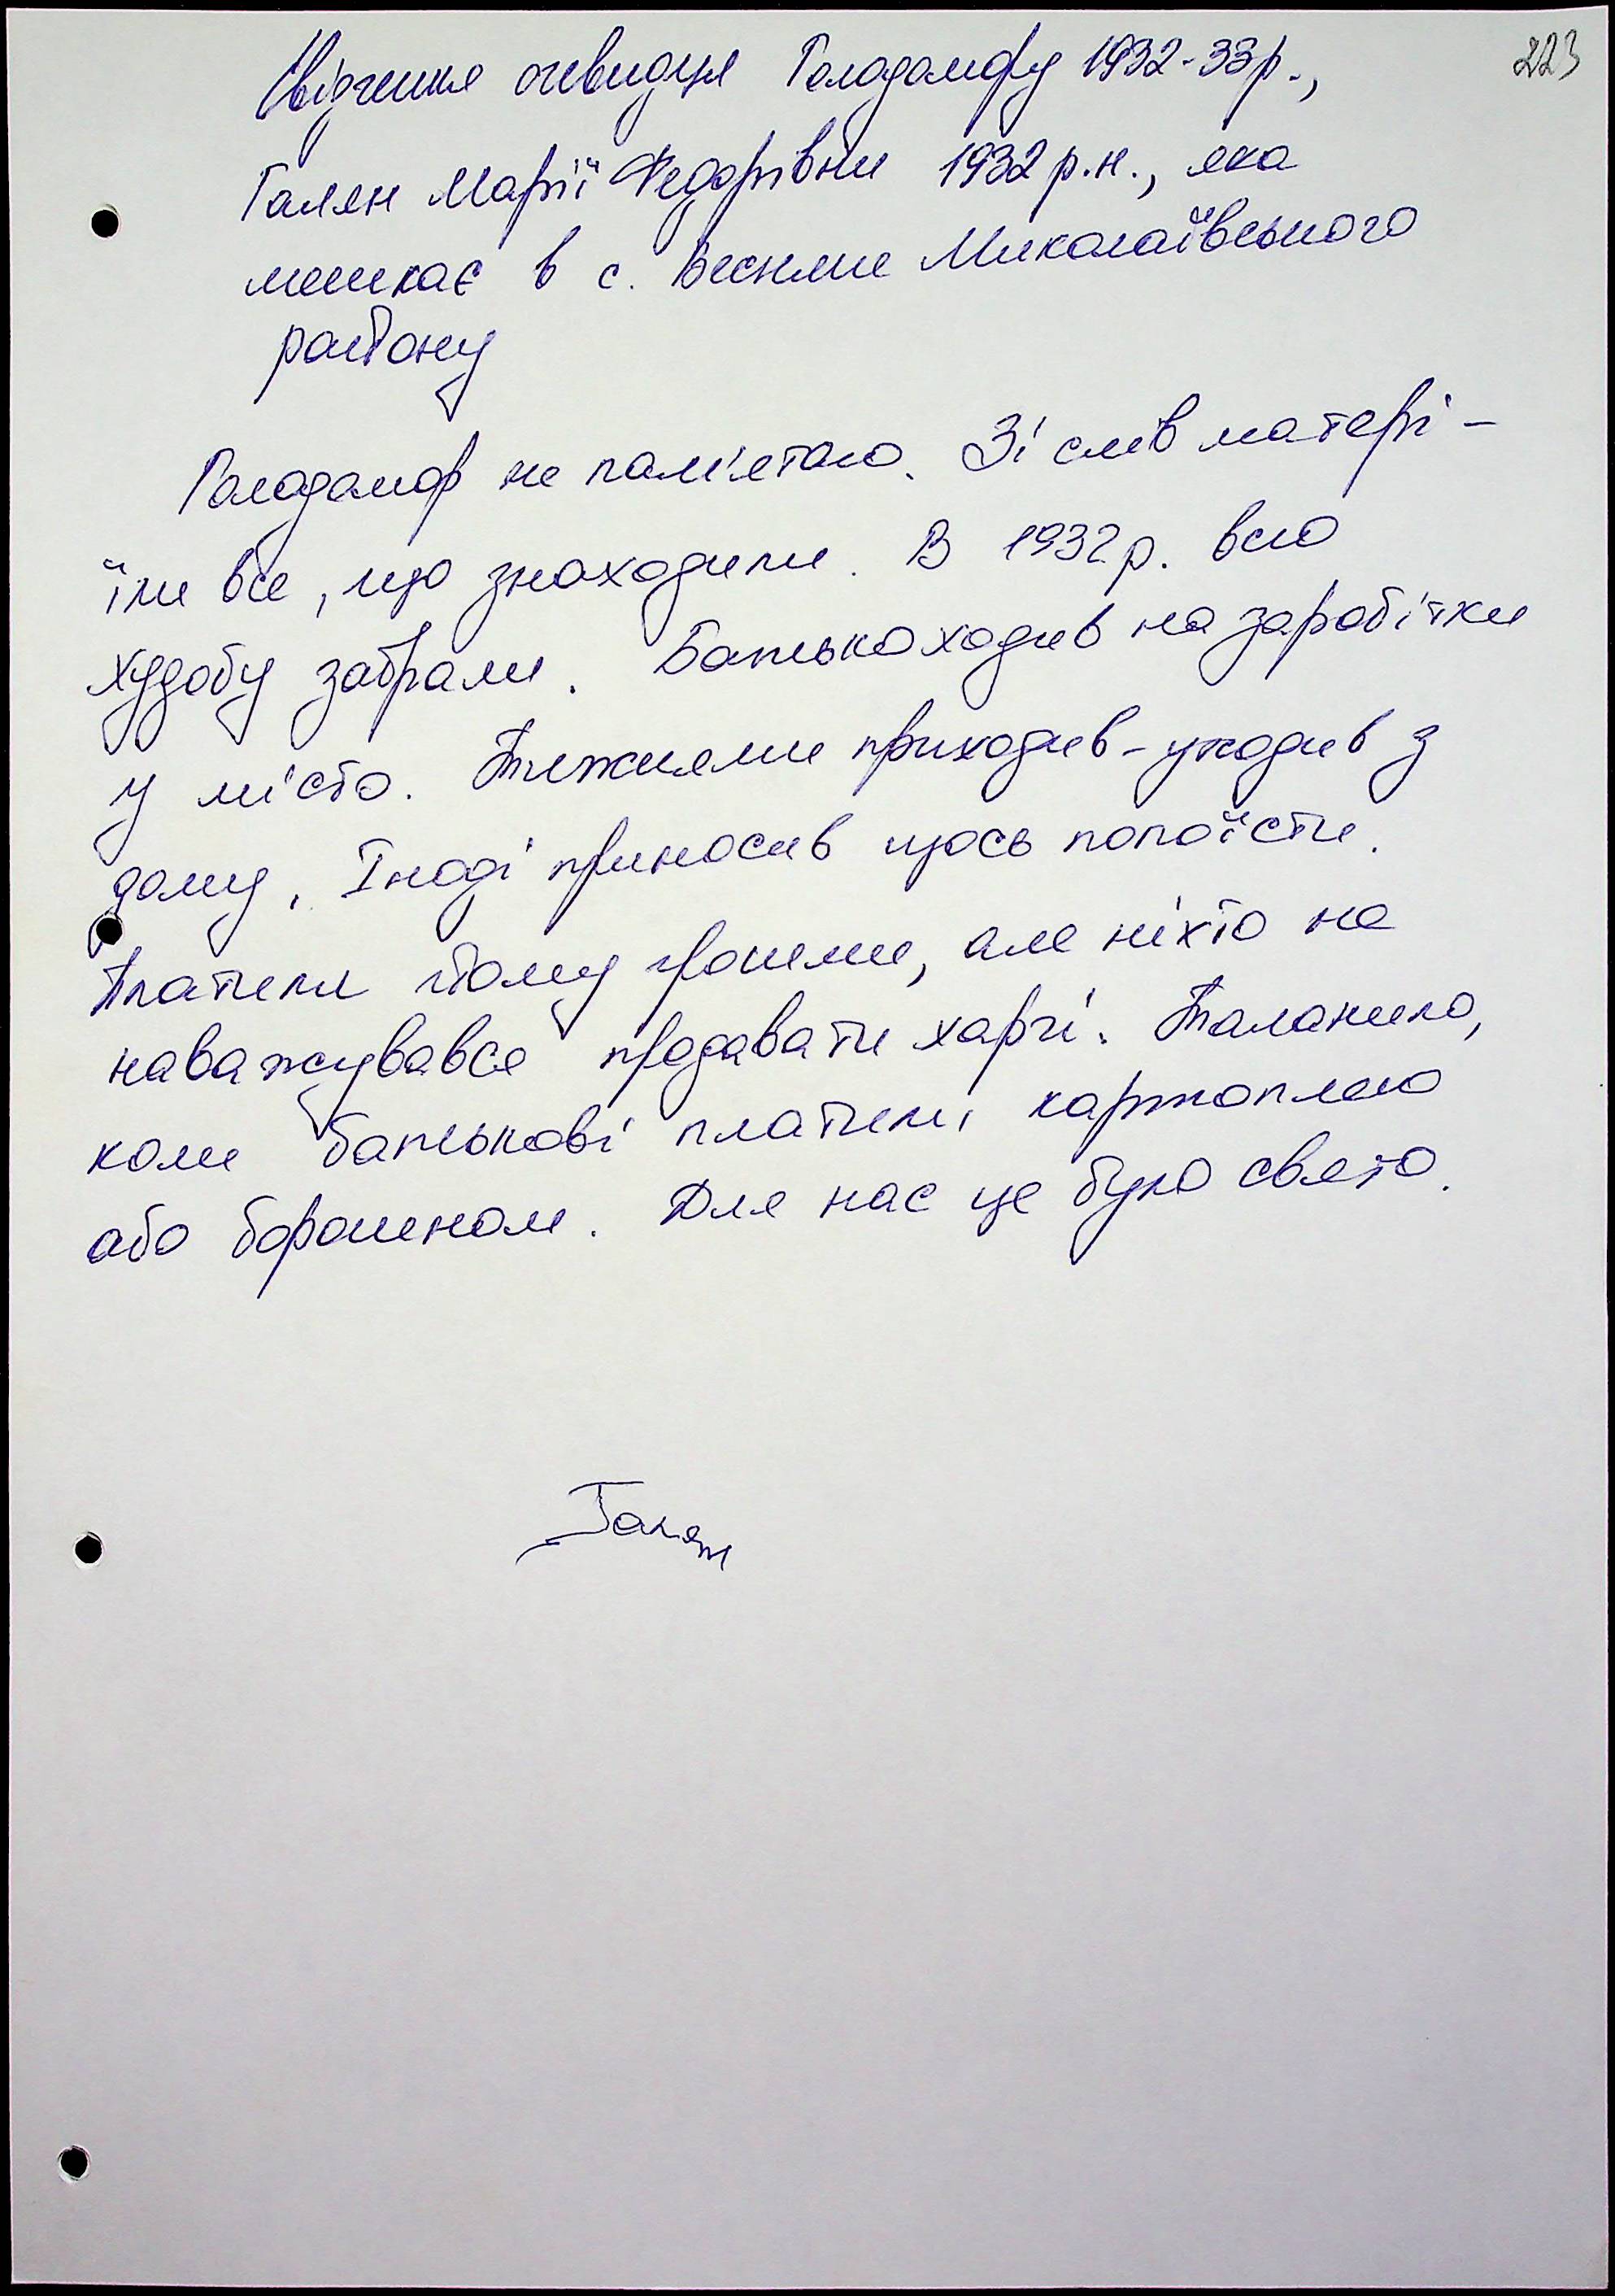 223
Свідчення очевидця Голодомору 1932-33р.,
Галян Марії Федорівни 1932 р.н., яка
мешкає в с. Весняне Миколаївського
району
Голодомор не пам'ятаю. Зі слів матері -
їли все, що знаходили. В 1932 р. всю
худобу забрали. Батько ходив на заробітки
у місто. Тижнями приходив-уходив з
дому. Іноді приносив щось попоїсти.
Платили йому грошима, але ніхто не
наважувався продавати харчі. Таланило,
коли батькові платили картоплею
або борошном. Для нас це було свято.
Галян